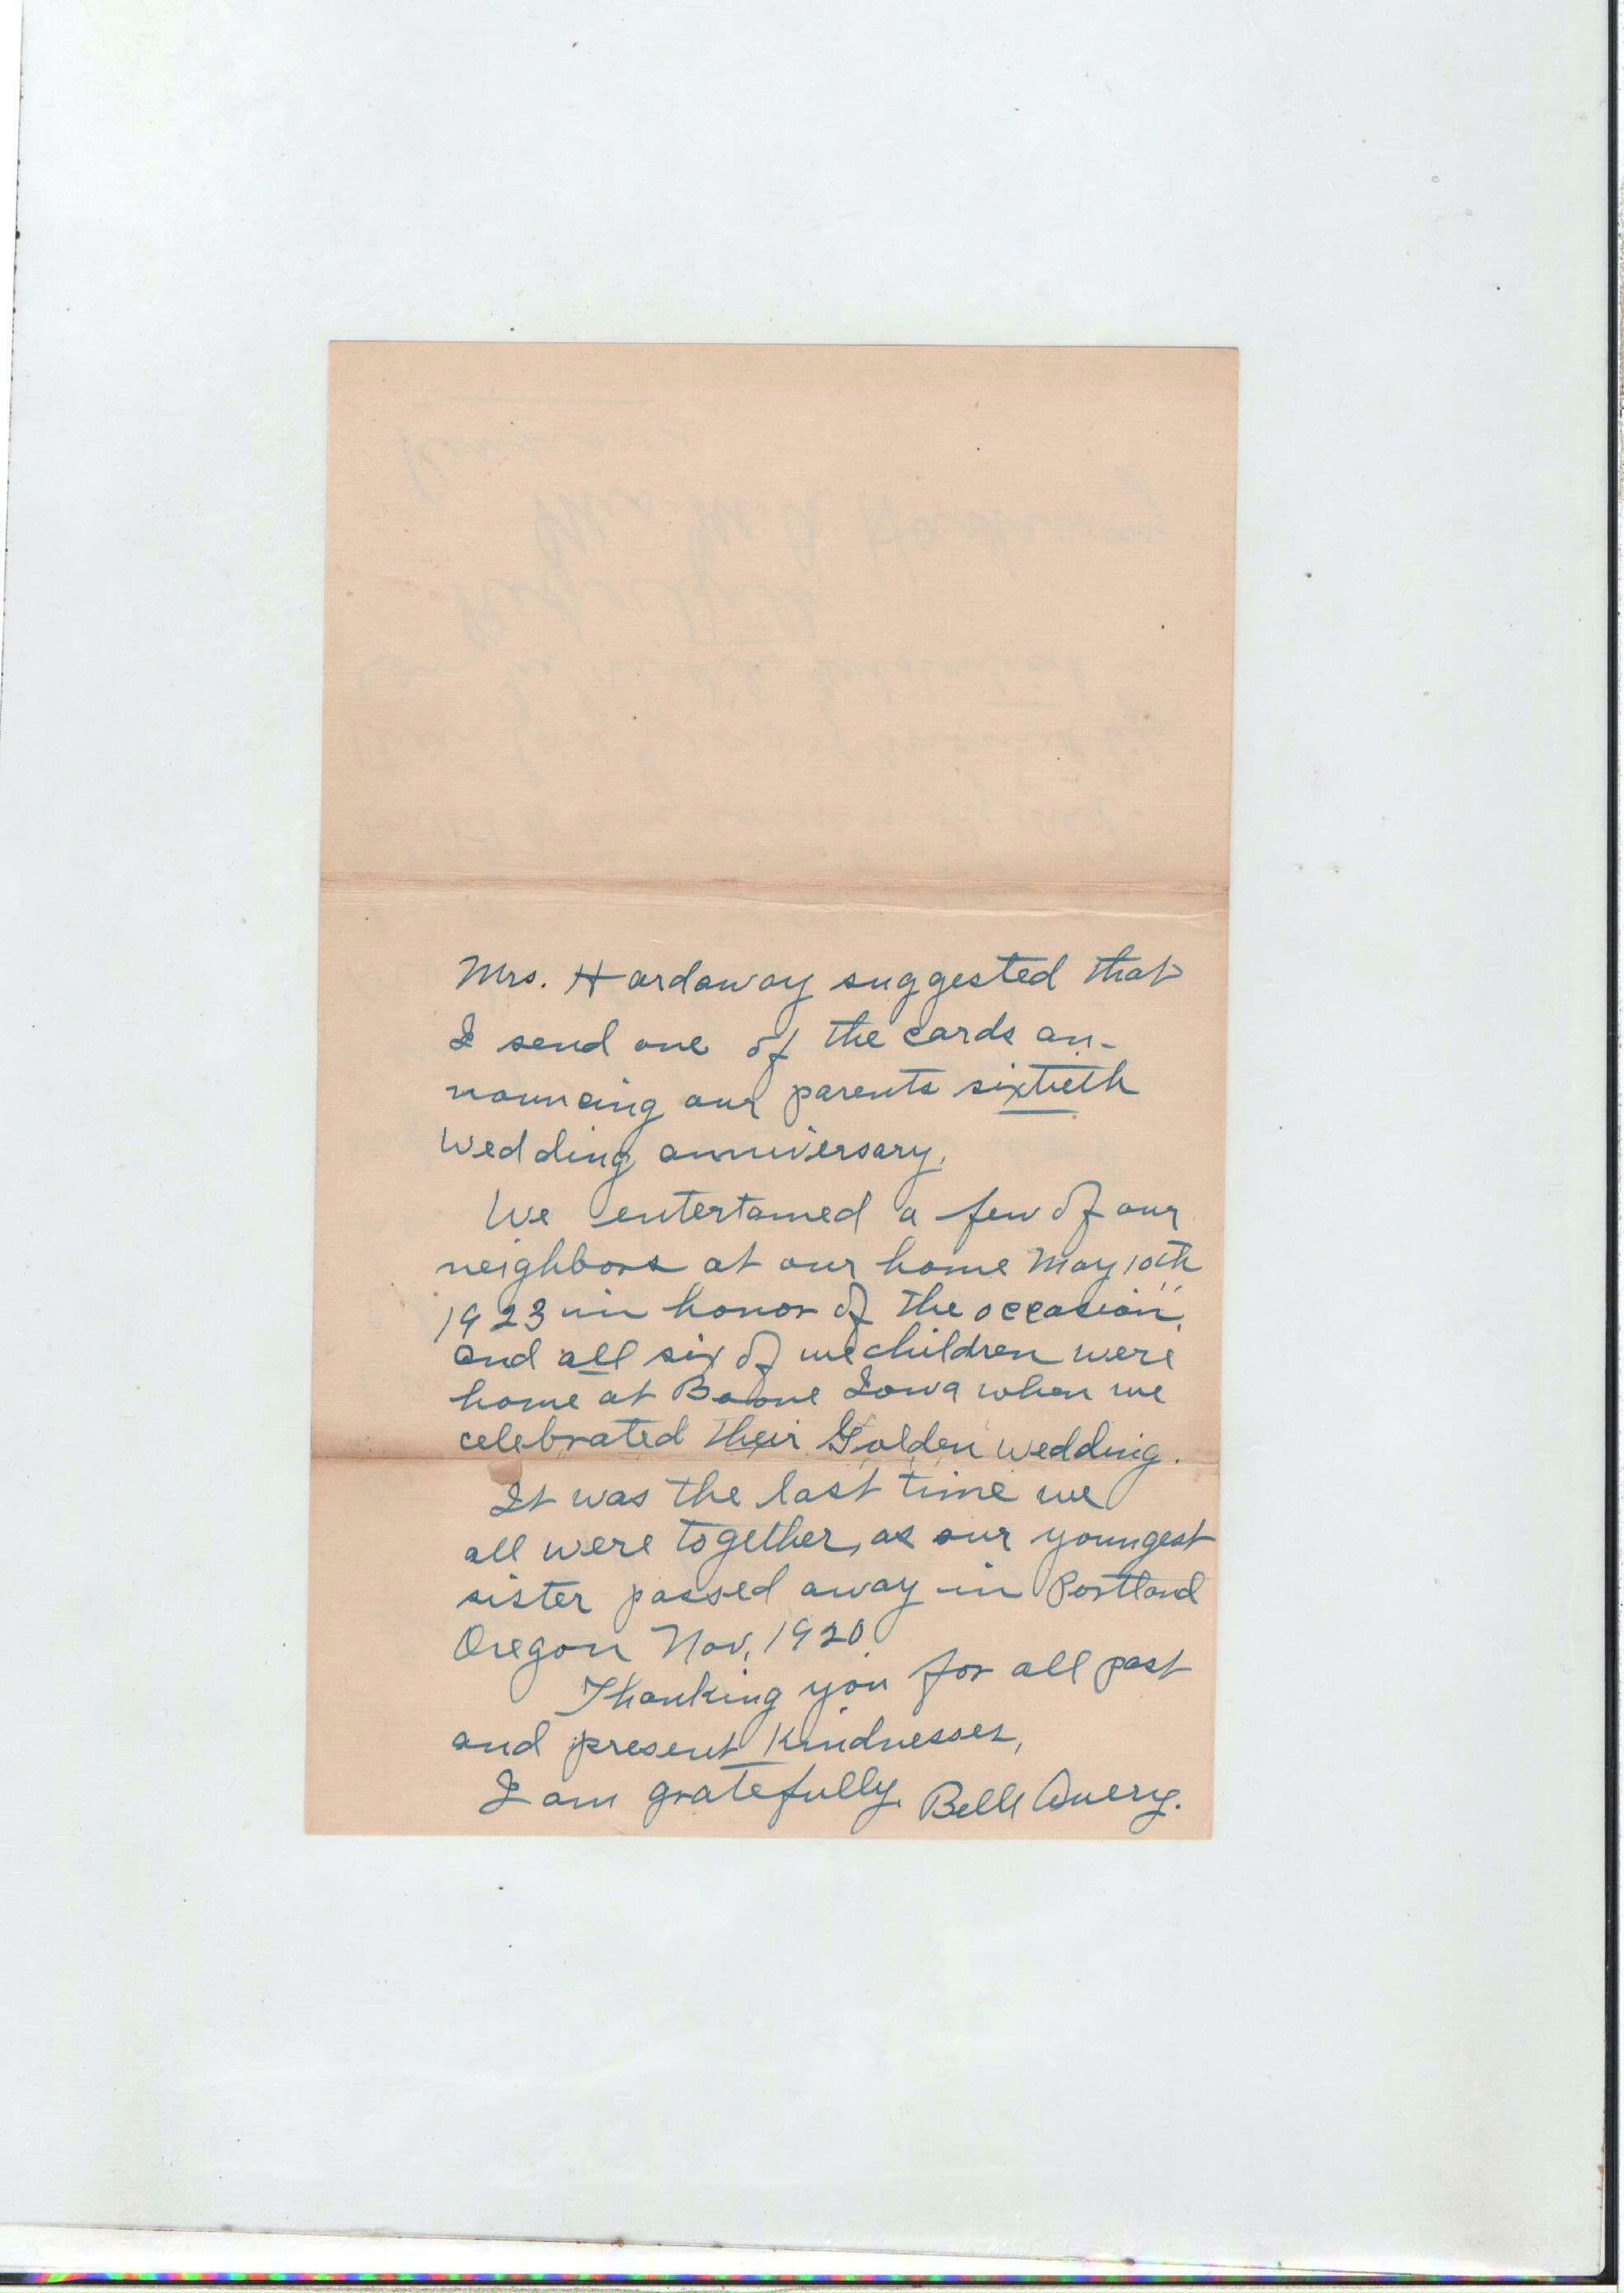 Mrs. Hardaway suggested that
I send one of the cards an-
nouncing our parents sixtieth
Wedding anniversary.
We entertained a few of our
neighbors at our home May 10th
1923 in honor of the occasion.
and all six of we children were
home at Boone Iowa when we
celebrated their Golden Wedding.
It was the last time we
all were together, as our youngest
sister passed away in Portland
Oregon Nov. 1920
Thanking you for all past
and present Kindnesses,
I am gratefully. Belle Query.